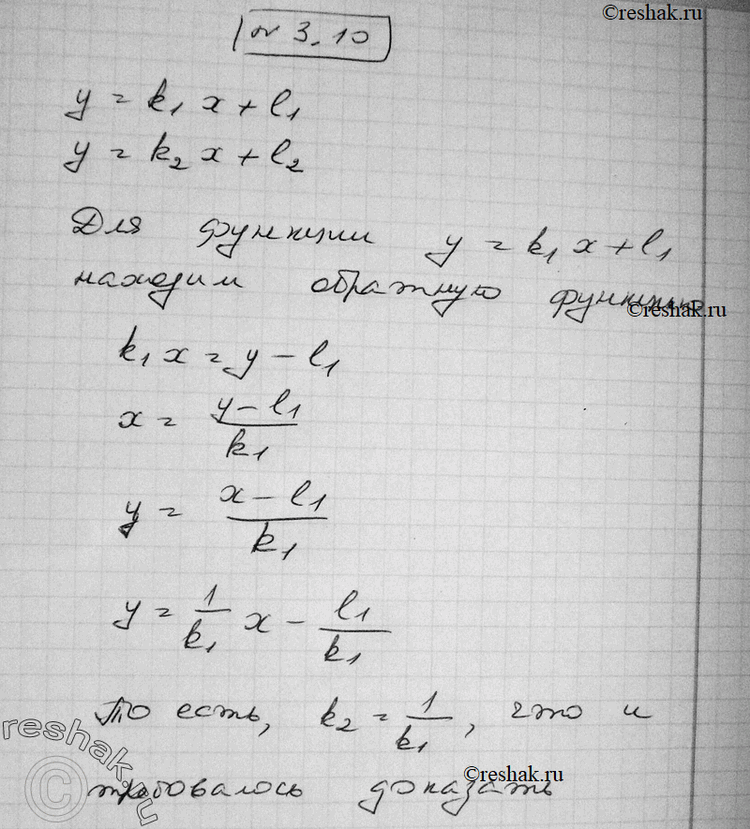 ©reshak.ru
№ 3.10
y = k₁ x + l₁
y = k₂ x + l₂
Для функции y = k₁ x + l₁
находим обратную функцию
©reshak.ru
k₁ x = y - l₁
x = (y - l₁)/k₁
y = (x - l₁)/k₁
y = 1/k₁ x - l₁/k₁
То есть, k₂ = 1/k₁, что и
требовалось доказать
©reshak.ru
reshak.ru
©